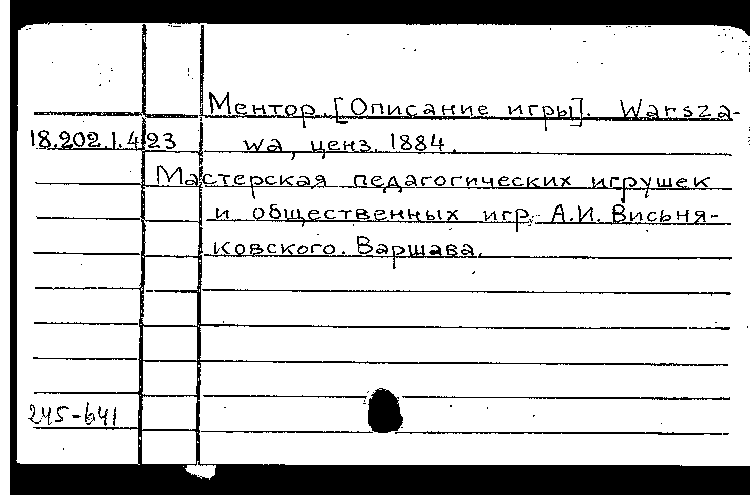 Ментор. [Описание игры]. Warsza-
18.202.1.423 wa, ценз. 1884.
Мастерская педагогических игрушек
и общественных игр А.И. Висьня-
ковского. Варшава.
245-641